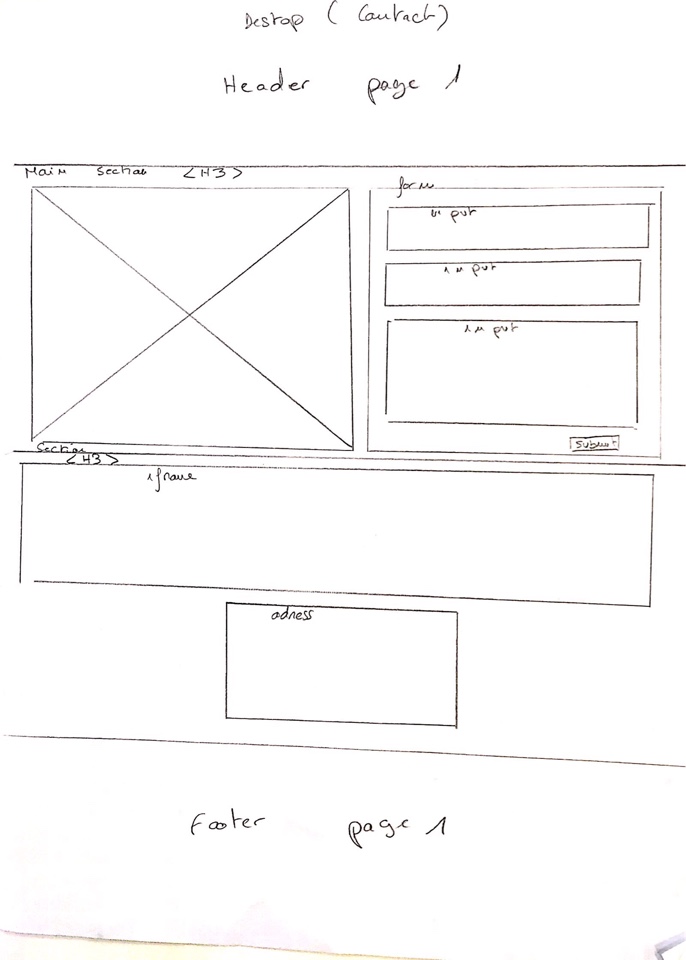 Destop ( Contact)
Header page 1
Main Section <H3>
form
in put
in put
in put
Submit
Section
<H3>
iframe
adress
Footer page 1